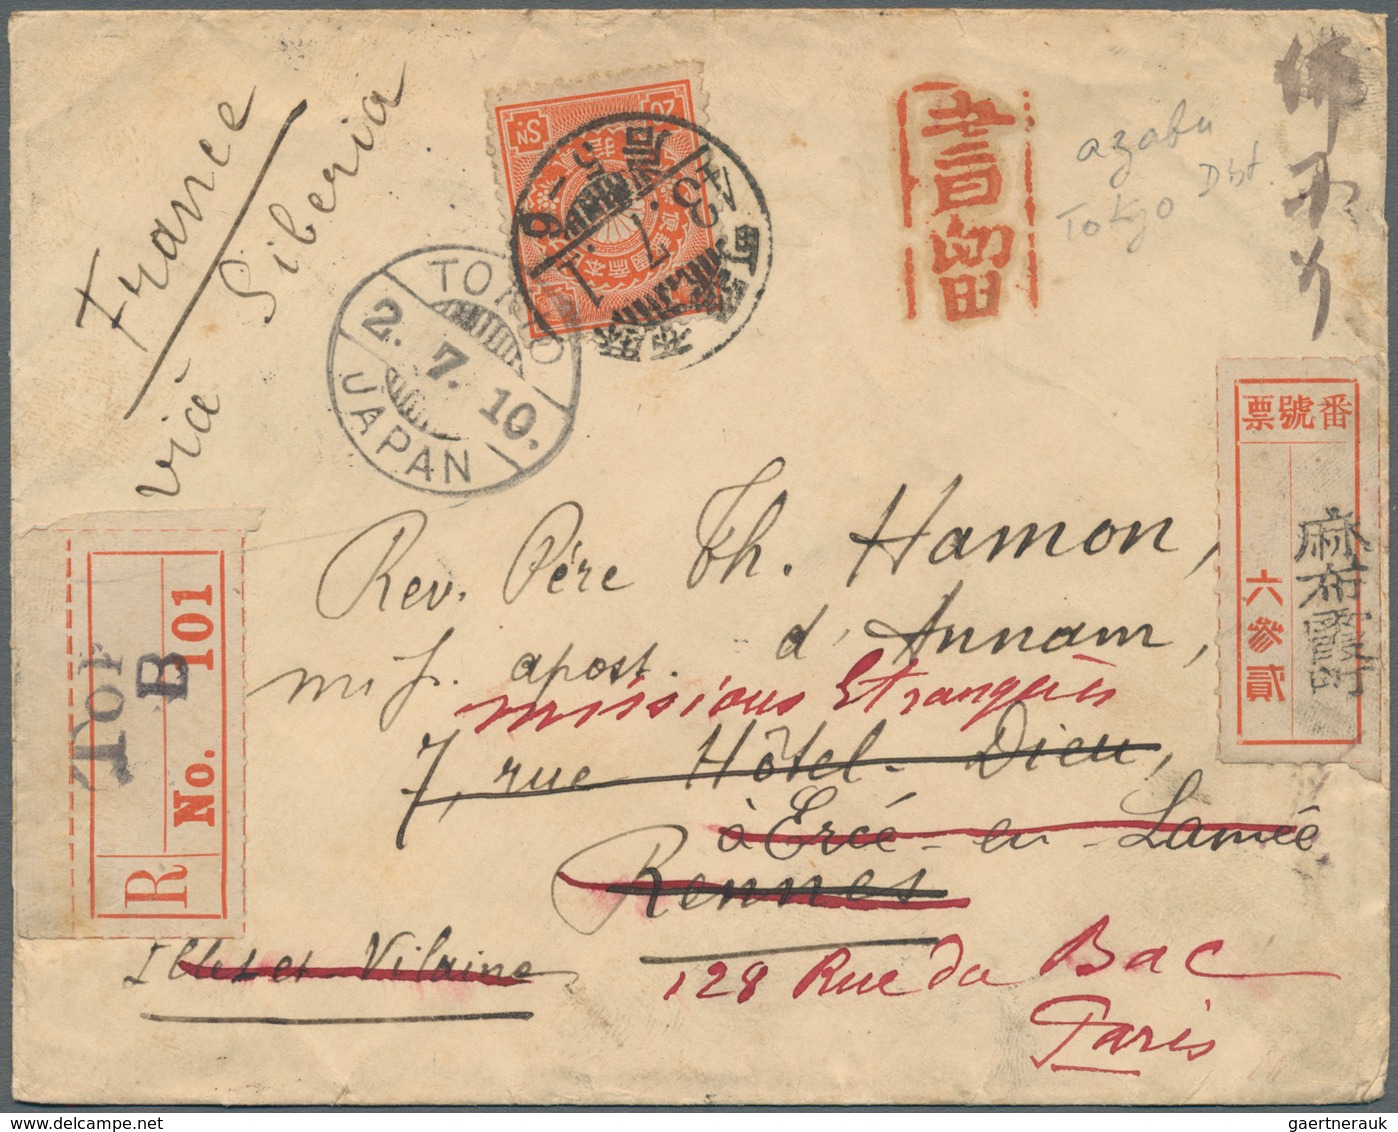 France
viâ Siberia
20 Sn
TOKIO
2. 7. 10.
JAPAN
43. 7. 1
書留
azabu
Tokyo Dist.
番號票
六參貳
麻布霞町
Tok
B
R No. 101
Rev. Père Th. Hamon,
mis. apost. d'Annam,
missions Etrangères
7, rue Hôtel-Dieu,
à Ercé-en-Lamée
Rennes
Ille-et-Vilaine
128 Rue du Bac
Paris
gaertnerauk